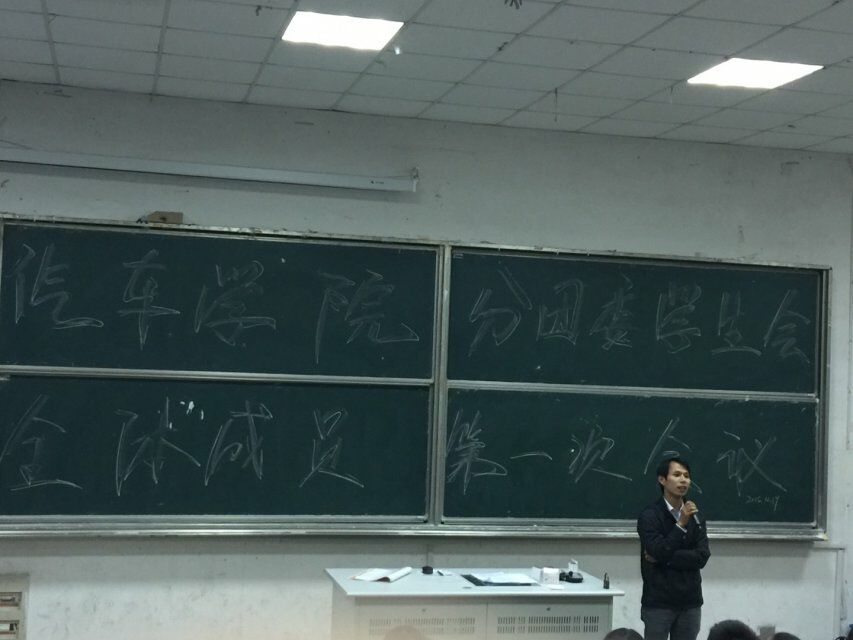 汽车学院 分团委学生会
全体成员 第一次会议